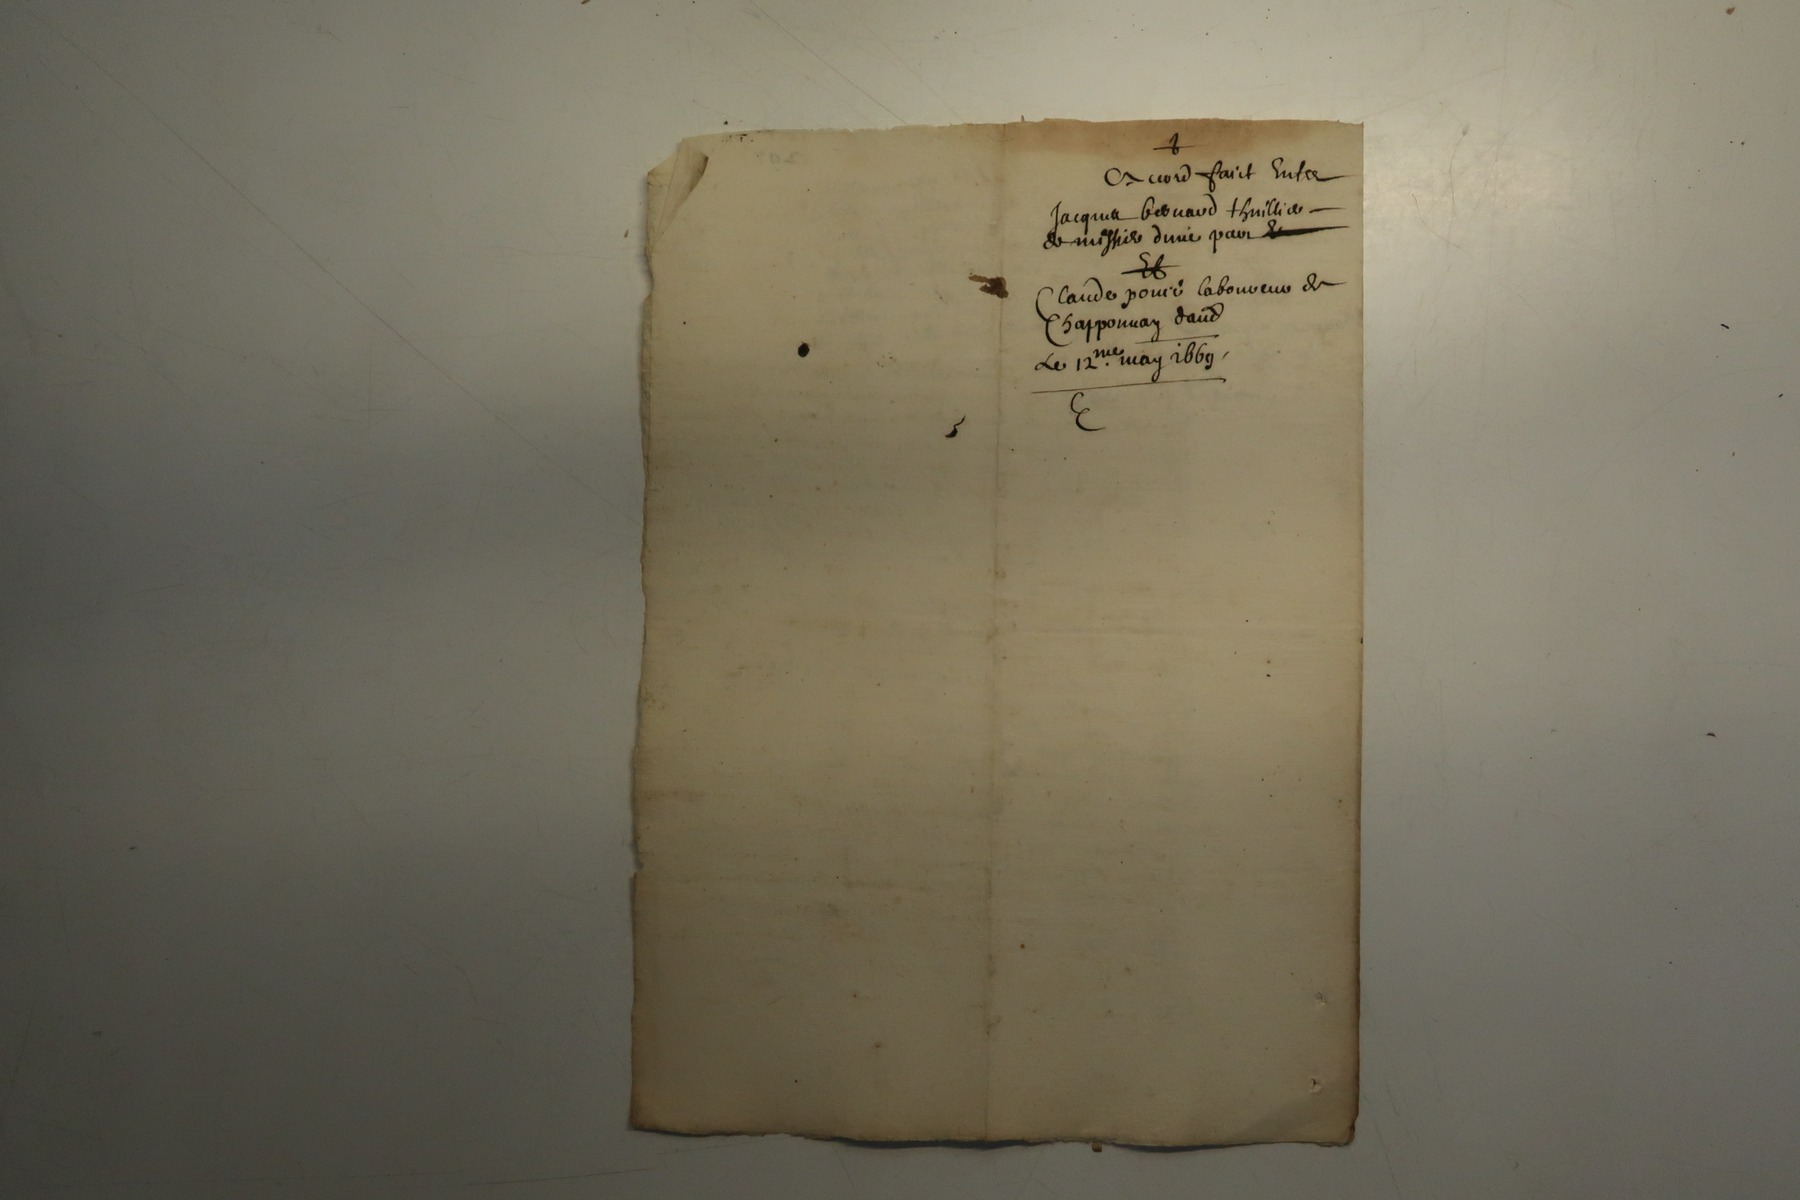 Accord faict Entre
Jacques bernard thuillier
de missie dune part &
Et
Claude ponce laboureur de
Chapponnay daud
Le 12me may 1669